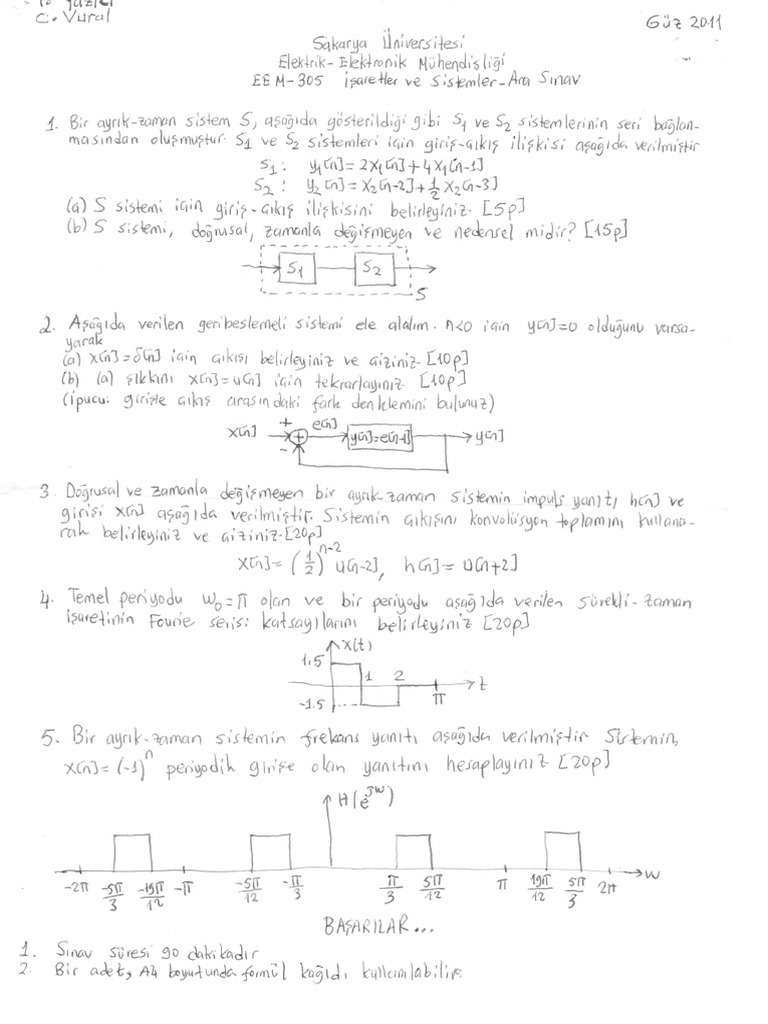 C. Vural
Güz 2011
Sakarya Üniversitesi
Elektrik-Elektronik Mühendisliği
EEM-305 İşaretler ve Sistemler-Ara Sınav
1. Bir ayrık-zaman sistem S, aşağıda gösterildiği gibi S1 ve S2 sistemlerinin seri bağlan-
masından oluşmuştur. S1 ve S2 sistemleri için giriş-çıkış ilişkisi aşağıda verilmiştir
S1: y1[n]=2x1[n]+4x1[n-1]
S2: y2[n]=x2[n-2]+1/2 x2[n-3]
(a) S sistemi için giriş-çıkış ilişkisini belirleyiniz. [5p]
(b) S sistemi, doğrusal, zamanla değişmeyen ve nedensel midir? [15p]
S1 S2
S
2. Aşağıda verilen geribeslemeli sistemi ele alalım. n<0 için y[n]=0 olduğunu varsa-
yarak
(a) x[n]=δ[n] için çıkışı belirleyiniz ve çiziniz [10p]
(b) (a) şıkkını x[n]=u[n] için tekrarlayınız [10p]
(ipucu: girişle çıkış arasındaki fark denklemini bulunuz)
x[n] + e[n] y[n]=e[n-1] y[n]
+
-
3. Doğrusal ve zamanla değişmeyen bir ayrık-zaman sistemin impuls yanıtı, h[n] ve
girişi x[n] aşağıda verilmiştir. Sistemin çıkışını konvolüsyon toplamını kullana-
rak belirleyiniz ve çiziniz.[20p]
x[n]=(1/2)^n-2 u[n-2], h[n]=u[n+2]
4. Temel periyodu w0=π olan ve bir periyodu aşağıda verilen sürekli-zaman
işaretinin Fourie serisi katsayılarını belirleyiniz [20p]
x(t)
1.5
1 2
t
-1.5 π
5. Bir ayrık-zaman sistemin frekans yanıtı aşağıda verilmiştir. Sistemin,
x[n]=(-1)^n periyodik girişe olan yanıtını hesaplayınız [20p]
H(e^jw)
-2π -5π/3 -19π/12 -π -5π/12 -π/3 π/3 5π/12 π 19π/12 5π/3 2π w
BAŞARILAR...
1. Sınav süresi 90 dakikadır
2. Bir adet, A4 boyutunda formül kağıdı kullanılabilir